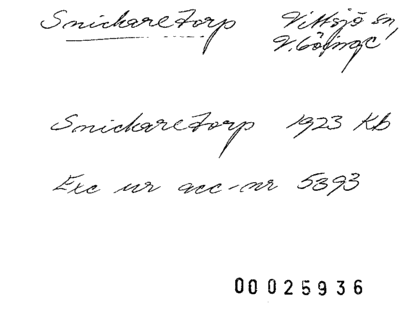 Snickaretorp Vittsjö sn,
V. Göinge
Snickaretorp 1923 Kb
Exc ur acc-nr 5393
00 025936